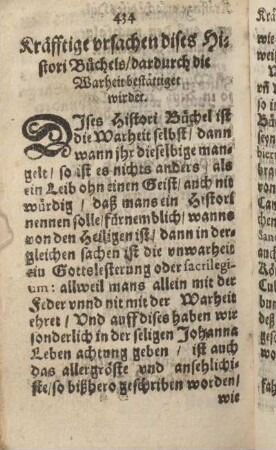 434
Kräfftige vrsachen dises Hi-
stori Büchels/dardurch die
Warheit bestättiget
wirdet.
Dises Histori Büchel ist
die Warheit selbst/ dann
wann jhr dieselbige man-
gelt/ so ist es nichts anders/ als
ein Leib ohn einen Geist/ auch nit
würdig/ daß mans ein Histori
nennen solle/ fürnemblich/ wanns
von den Heiligen ist/ dann in der-
gleichen sachen ist die vnwarheit
ein Gottslesterung oder sacrilegi-
um: allweil mans allein mit der
Feder vnnd nit mit der Warheit
ehret/ Vnd auff dises haben wir
sonderlich in der seligen Johanna
Leben achtung geben/ ist auch
das allergröste vnd ansehlichi-
ste/ so bißhero geschriben worden/
wie